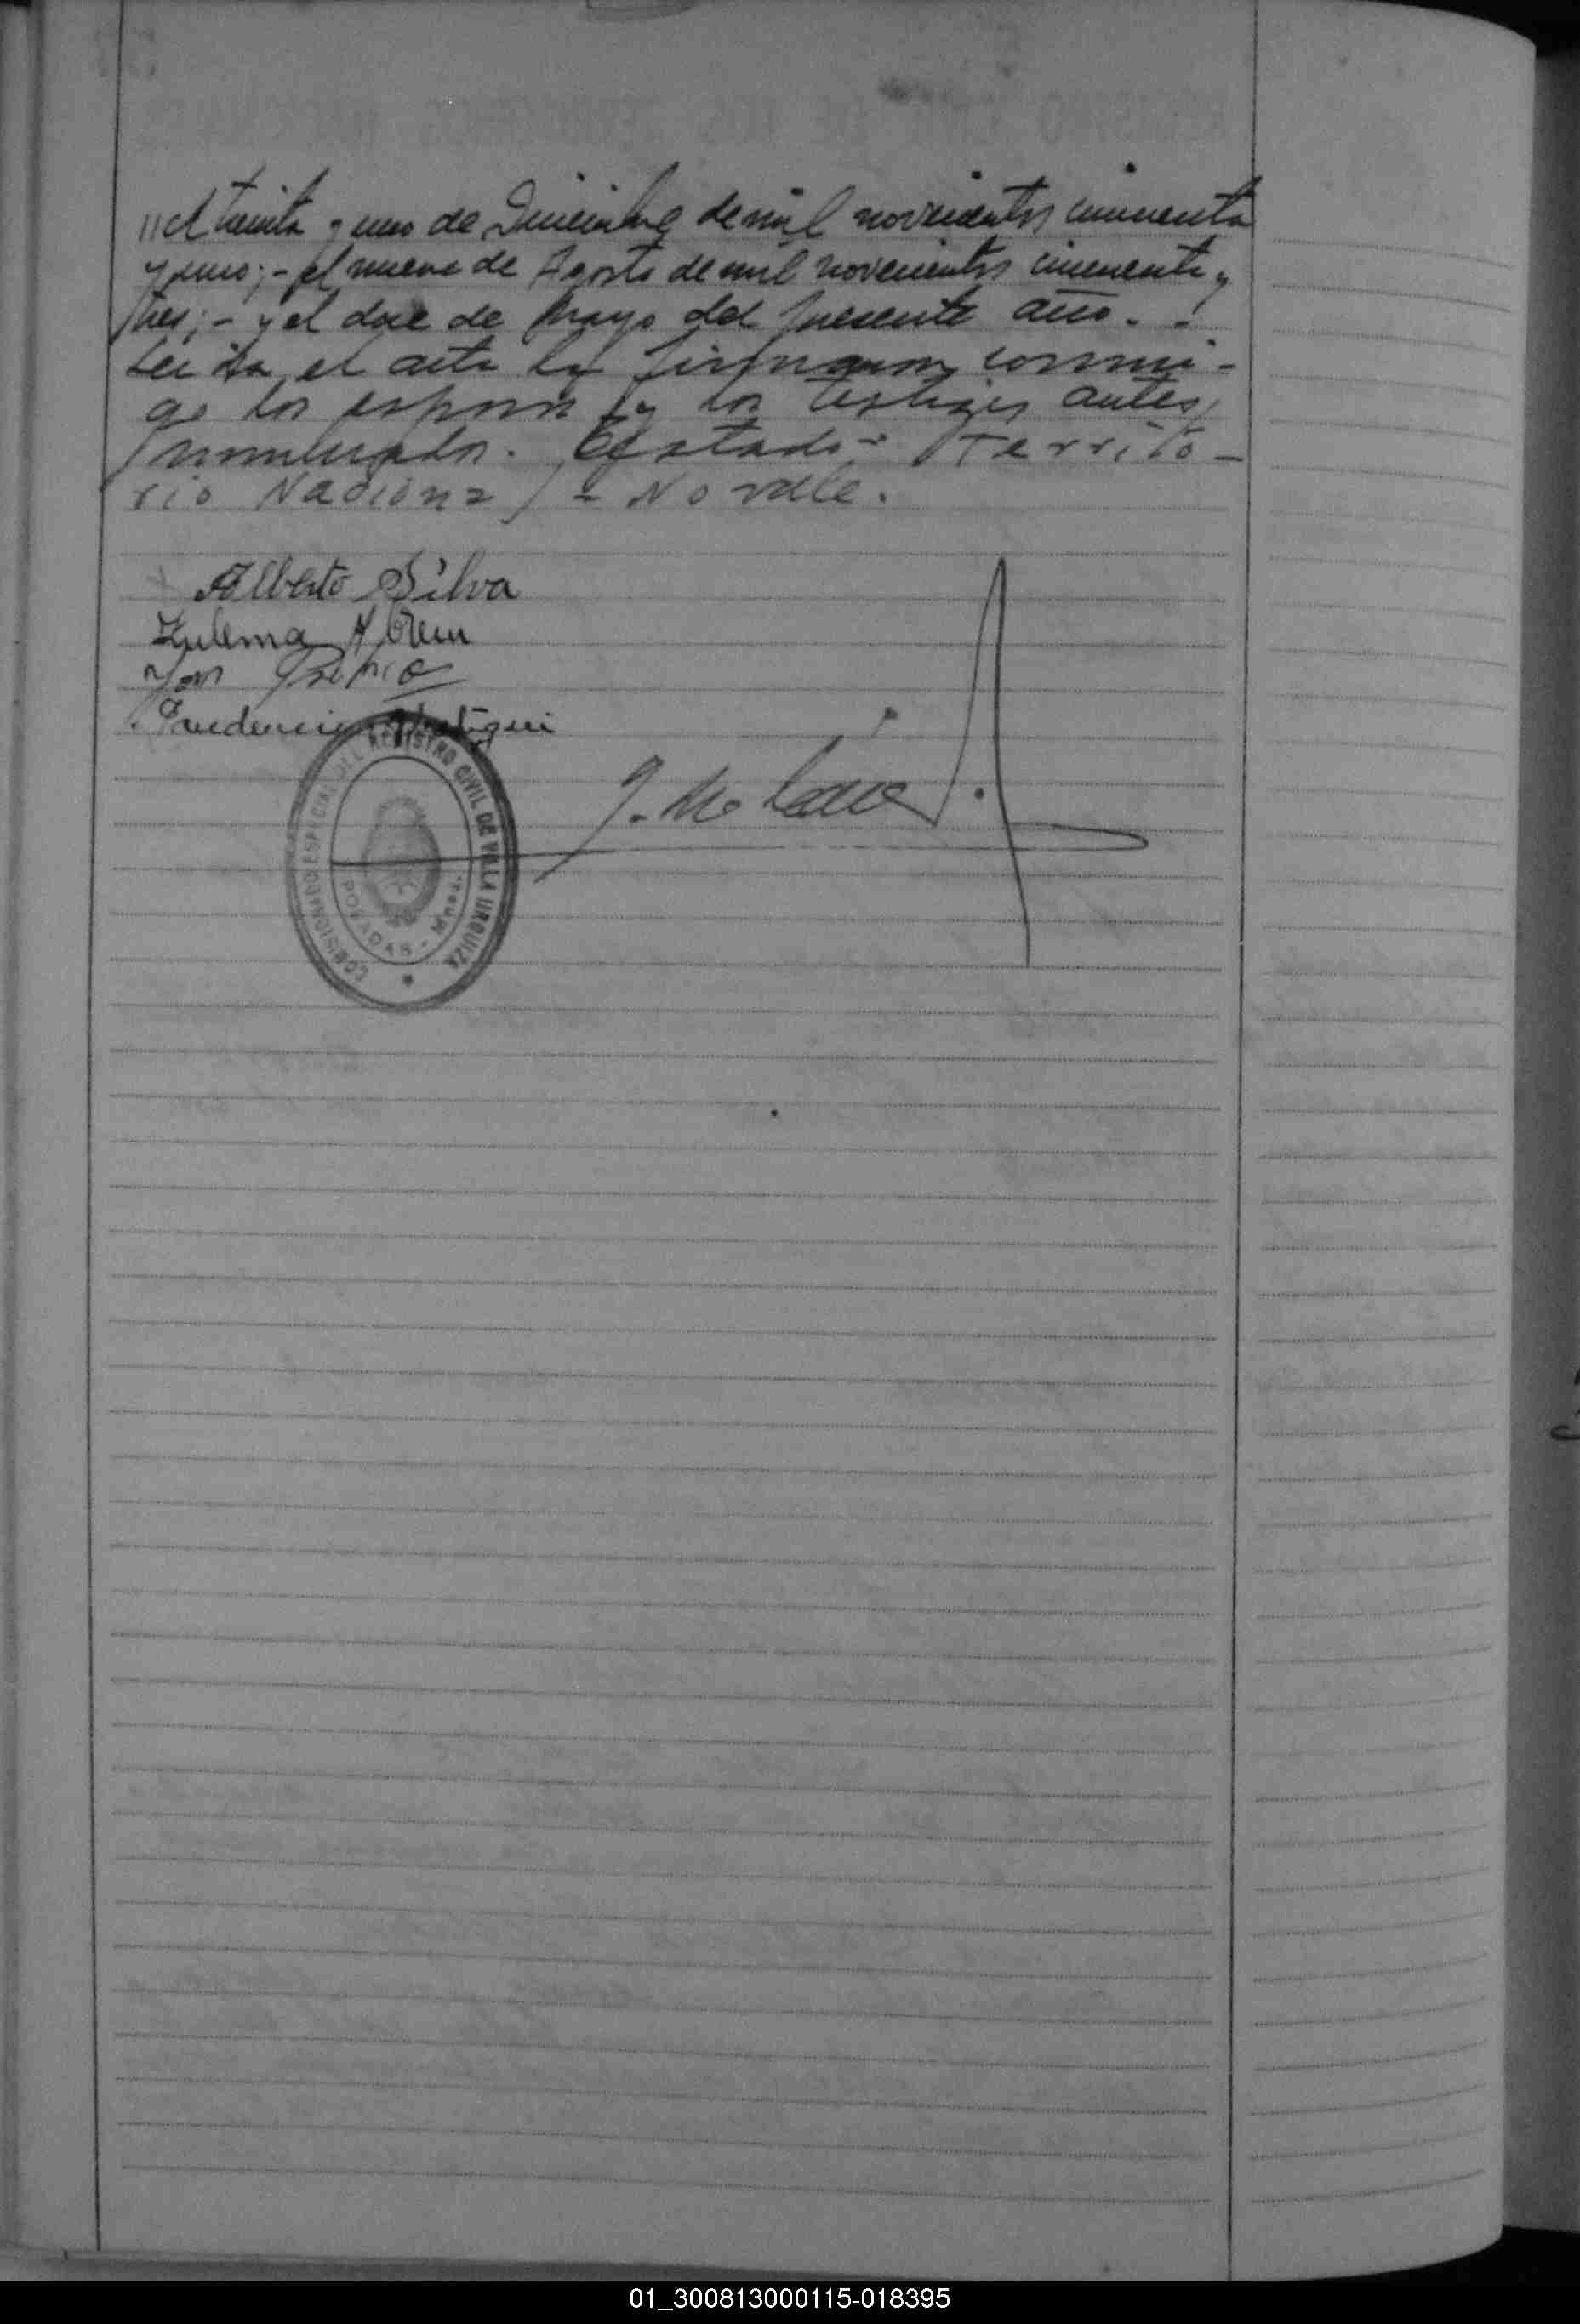 //el treinta y uno de Diciembre de mil novecientos cincuenta
y uno; - el nueve de Agosto de mil novecientos cincuenta y
tres; - y el doce de Mayo del presente año. -
Leida el acta la firmaron conmi-
go los esposos y los testigos antes
nombrados. Testado: Territo-
rio Nacional - No vale.
Alberto Silva
Zulema Abreu
Juan
Prudencio
J. M.
COMISIONADO ESPECIAL DEL REGISTRO CIVIL DE VILLA URQUIZA
POSADAS - Mnes.
01_300813000115-018395